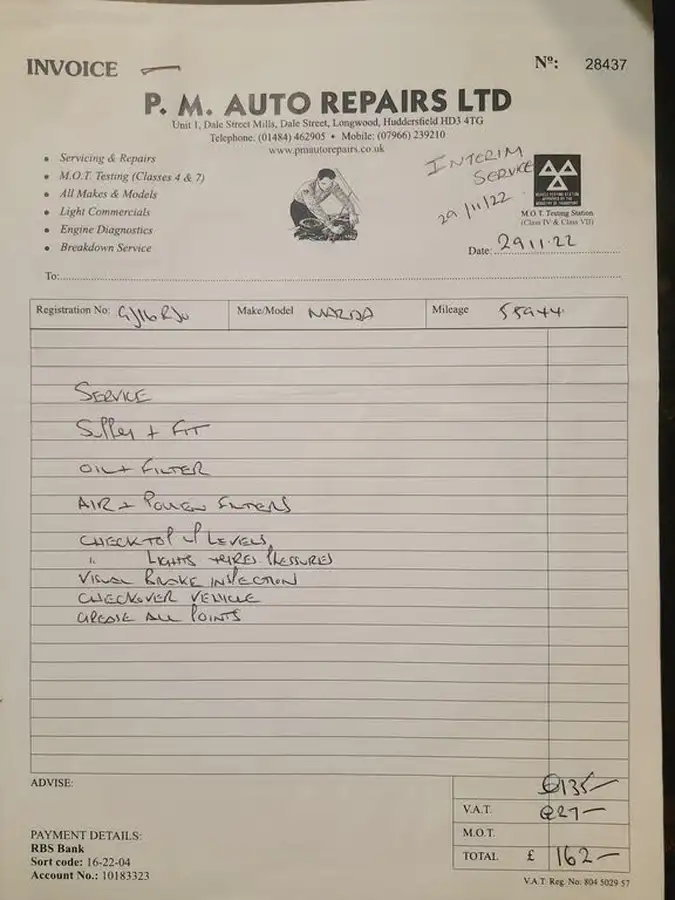 INVOICE
Nº: 28437
P. M. AUTO REPAIRS LTD
Unit 1, Dale Street Mills, Dale Street, Longwood, Huddersfield HD3 4TG
Telephone: (01484) 462905 • Mobile: (07966) 239210
www.pmautorepairs.co.uk
• Servicing & Repairs
• M.O.T. Testing (Classes 4 & 7)
• All Makes & Models
• Light Commercials
• Engine Diagnostics
• Breakdown Service
INTERIM
SERVICE
29/11/22
VEHICLE TESTING STATION
APPROVED BY THE
MINISTRY OF TRANSPORT
M.O.T. Testing Station
(Class IV & Class VII)
Date: 29.11.22
To:
Registration No: Make/Model MAZDA Mileage 55944
SERVICE
Supply + FIT
OIL + FILTER
AIR + POLLEN FILTERS
CHECK TOP UP LEVELS
" LIGHTS TYRES PRESSURES
VISUAL BRAKE INSPECTION
CHECKOVER VEHICLE
GREASE ALL POINTS
ADVISE:
£135 —
V.A.T. £27 —
M.O.T.
TOTAL £ 162 —
PAYMENT DETAILS:
RBS Bank
Sort code: 16-22-04
Account No.: 10183323
V.A.T. Reg. No: 804 5029 57